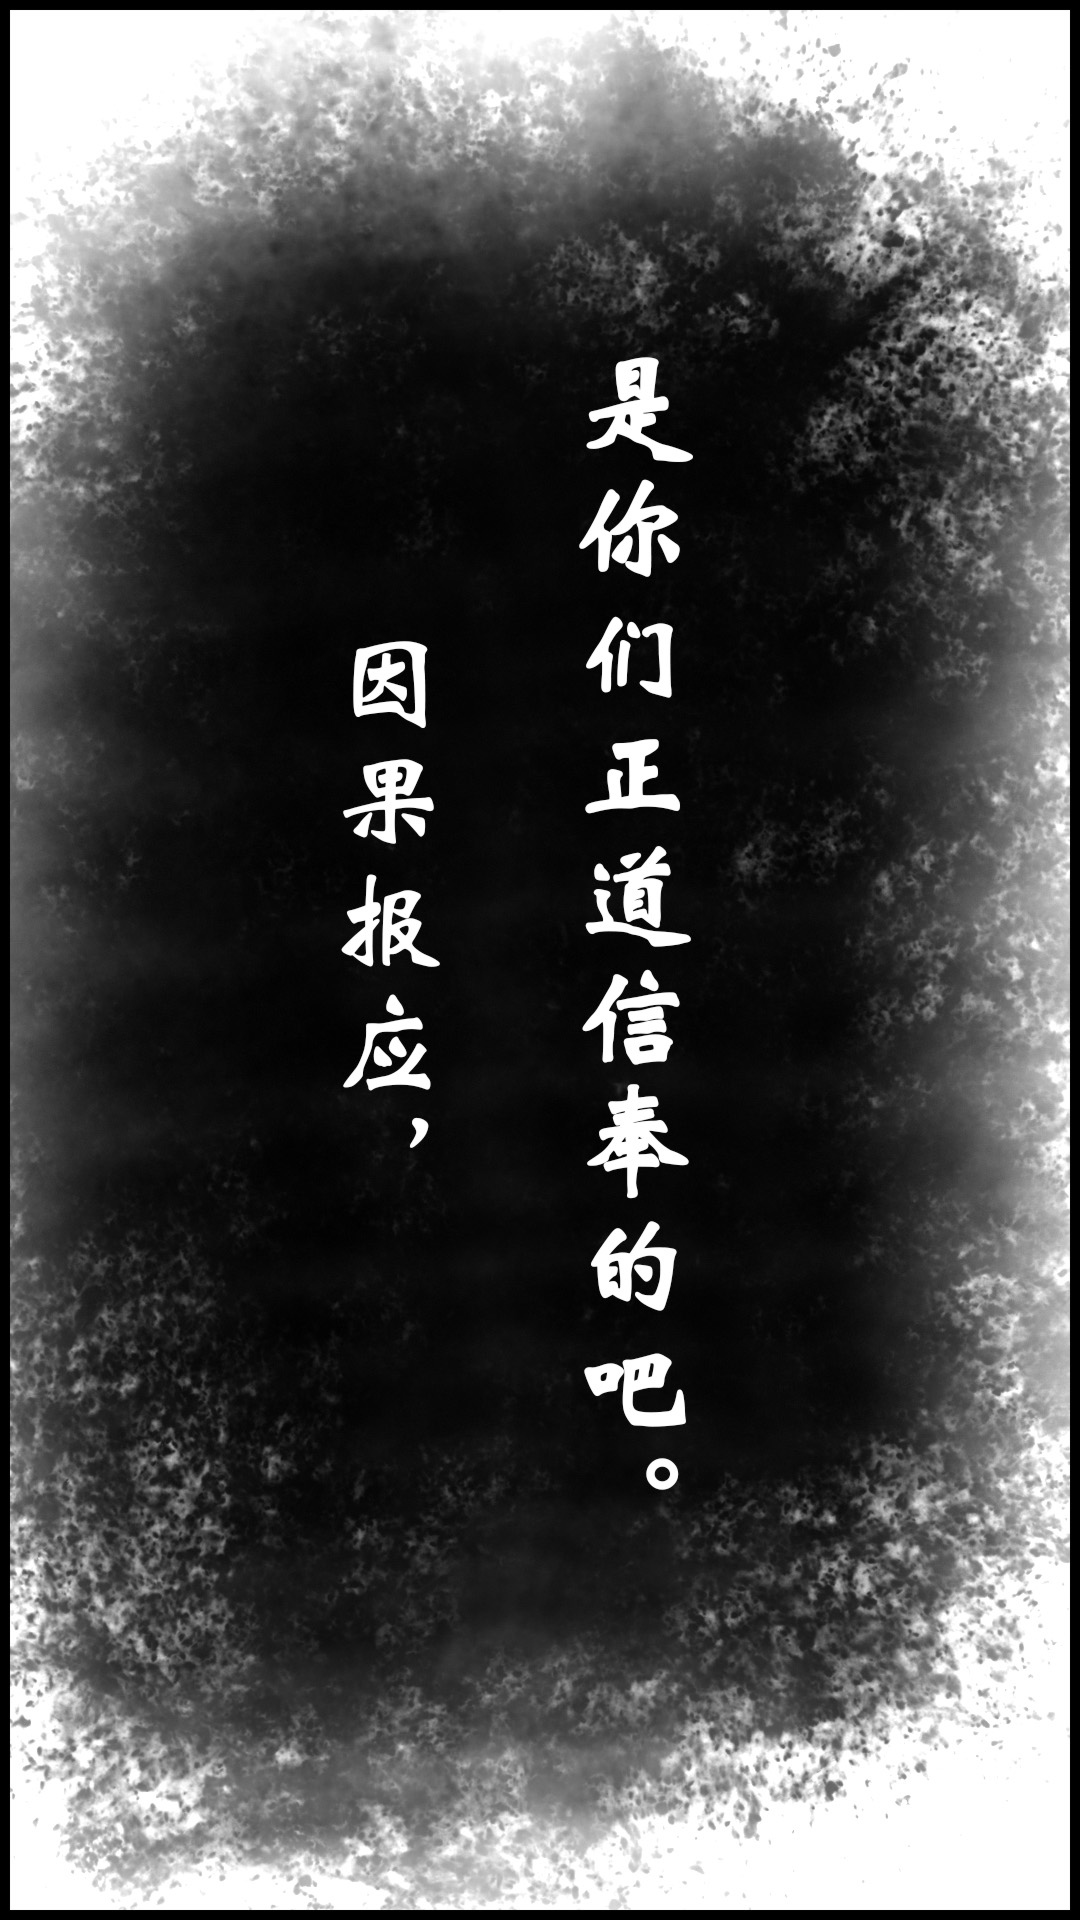 因果报应，
是你们正道信奉的吧。